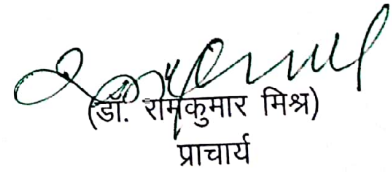 (डॉ. रामकुमार मिश्र)
प्राचार्य